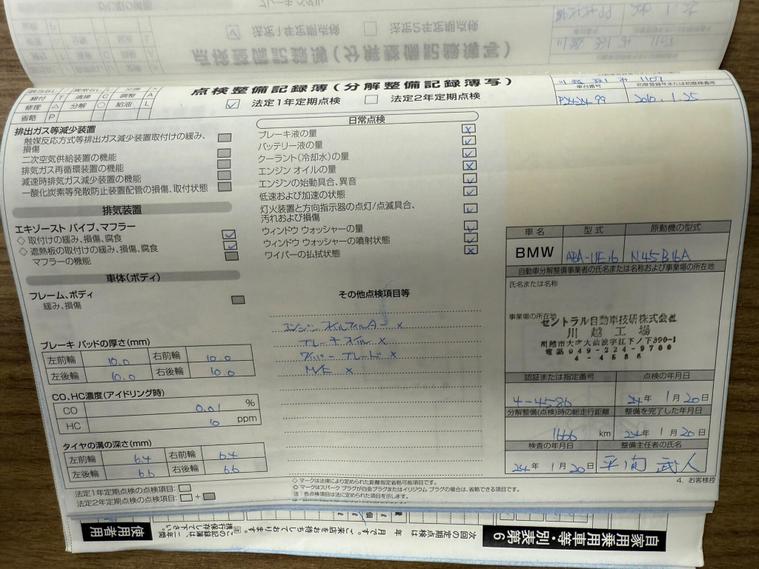 点検整備記録簿(分解整備記録簿写)
法定1年定期点検 法定2年定期点検
点検 T 清掃 C 調整 A
修理 △ 分解 ○ 給油 L
省略 P
車台番号
初度登録年
99 2010.1.25
排出ガス等減少装置
触媒反応方式等排出ガス減少装置取付けの緩み、
損傷
二次空気供給装置の機能
排気ガス再循環装置の機能
減速時排気ガス減少装置の機能
一酸化炭素等発散防止装置配管の損傷、取付状態
排気装置
エキゾースト パイプ、マフラー
◇ 取付けの緩み、損傷、腐食
◇ 遮熱板の取付けの緩み、損傷、腐食
マフラーの機能
車体(ボディ)
フレーム、ボディ
緩み、損傷
ブレーキ パッドの厚さ(mm)
左前輪 10.0 右前輪 10.0
左後輪 10.0 右後輪 10.0
CO、HC濃度(アイドリング時)
CO 0.01 %
HC 10 ppm
タイヤの溝の深さ(mm)
左前輪 6.4 右前輪 6.4
左後輪 6.6 右後輪 6.6
法定1年定期点検の点検項目:
法定2年定期点検の点検項目: +
日常点検
ブレーキ液の量
バッテリー液の量
クーラント(冷却水)の量
エンジン オイルの量
エンジンの始動具合、異音
低速および加速の状態
灯火装置と方向指示器の点灯/点滅具合、
汚れおよび損傷
ウィンドウ ウォッシャーの量
ウィンドウ ウォッシャーの噴射状態
ワイパーの払拭状態
その他点検項目等
エンジンオイルフィルター ×
ブレーキオイル ×
ワイパーブレード ×
M/F ×
◇ マークは法律により定められた距離指定省略可能項目です。
車名 型式 原動機の型式
BMW ABA-UE16 N45B16A
自動車分解整備事業者の氏名または名称および事業場の所在地
氏名または名称
事業場の所在地
セントラル自動車技研株式会社
川越工場
川越市大字大仙波字江下ノ下390-1
電話049-224-9700
4-4586
認証または指定番号 点検の年月日
4-4586 24年 1月20日
分解整備(点検)時の総走行距離 整備を完了した年月日
1666 km 24年 1月20日
検査の年月日 整備主任者の氏名
24年 1月20日
4. お客様控
自家用乗用車等・別表第6
使用者用